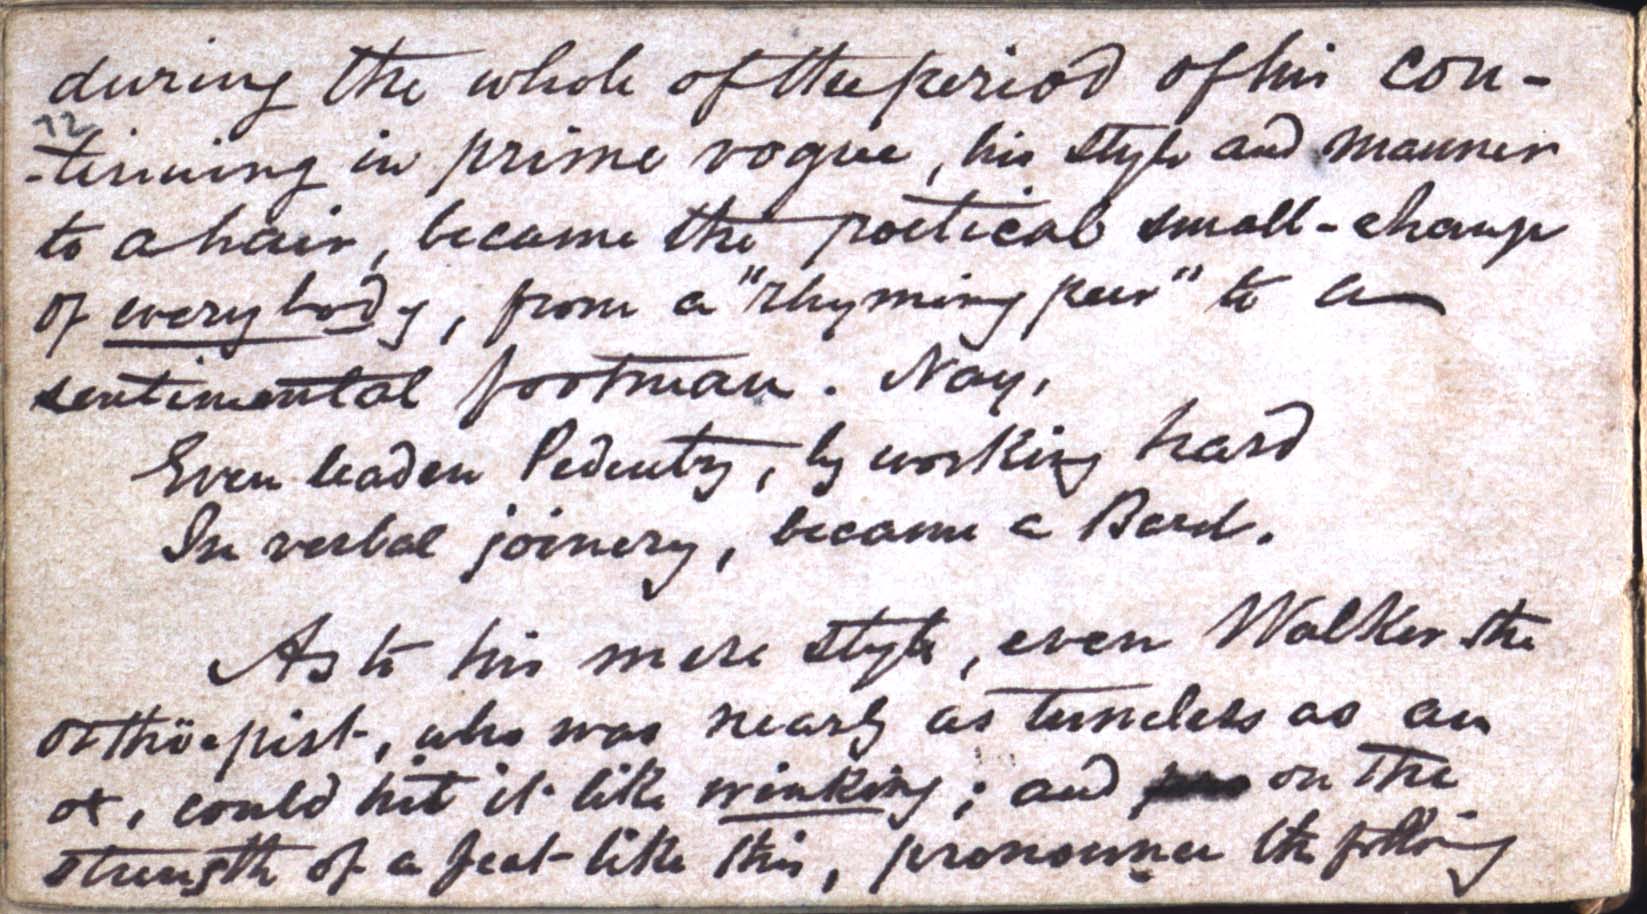 during the whole of the period of his con-
72
-tinuing in prime vogue, his style and manner
to a hair, became the poetical small-change
of everybody, from a "rhyming peer" to a
sentimental footman. Nay,
Even leaden Pedentry, by working hard
In verbal joinery, became a Bard.
As to his mere style, even Walker the
orthöepist, who was nearly as tuneless as an
ox, could hit it like winking; and on the
strength of a feat like this, pronounces the following